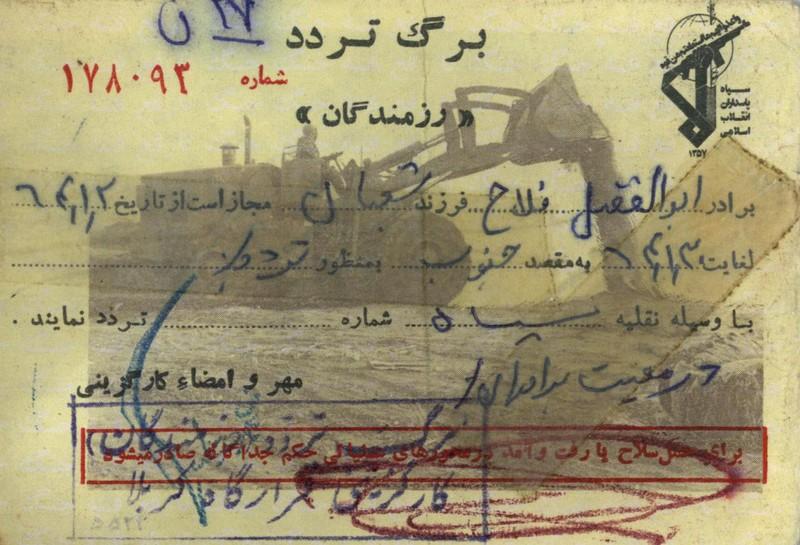 برگ تردد
شماره ۱۷۸۰۹۳
« رزمندگان »
سپاه
پاسداران
انقلاب
اسلامی
۱۳۵۷
برادر ابوالفضل فلاح فرزند شعبان مجاز است از تاریخ
لغایت به مقصد جنوب بمنظور تردد
با وسیله نقلیه سپاه شماره تردد نمایند .
در معیت برادران
مهر و امضاء کارگزینی
برگ تردد رزمندگان
برای حمل سلاح یا رفت و آمد در محورهای عملیاتی حکم جداگانه صادر میشود
کارگزینی قرارگاه کربلا